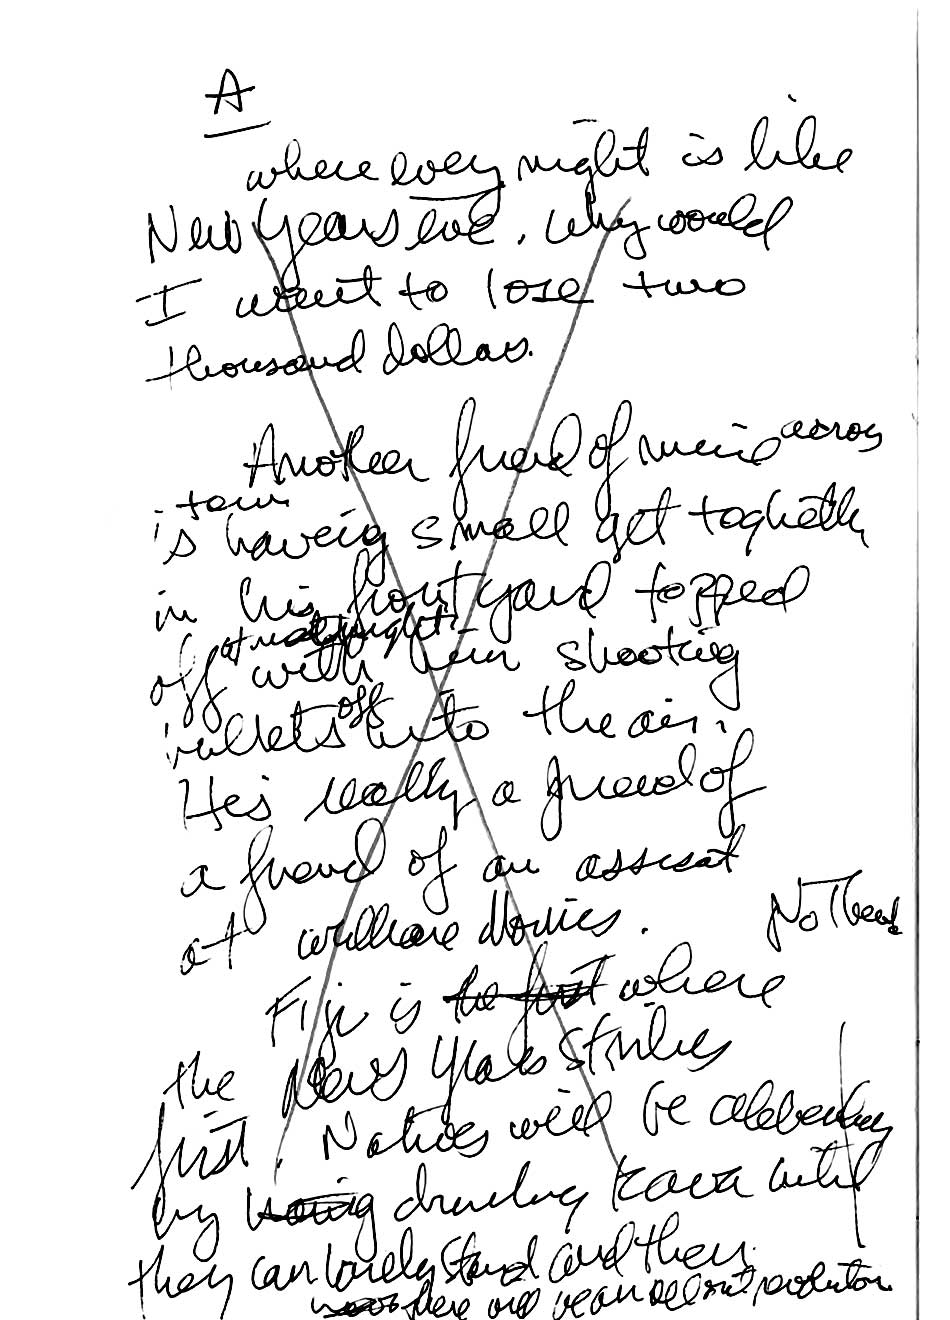 A
where every night is like
New Years eve. Why would
I want to lose two
thousand dollars.
Another friend of mine across
town
is having small get
in his front yard topped
at midnight
off with him shooting
off
bullets into the air.
Hes really a friend of
a friend of an
at Movies.
No There
Fiji is the first where
the New Years strikes
first. Natives will be celebrating
by having drinking Kava until
they can barely stand and then
there will be an